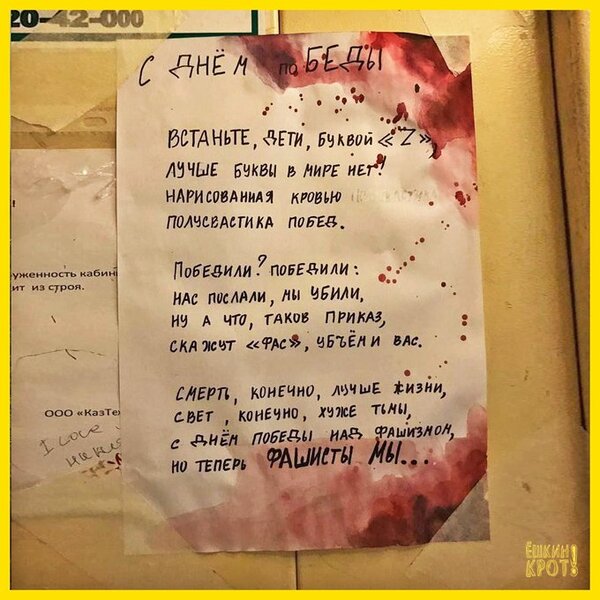 20-42-000
С ДНЁМ ПОБЕДЫ
ВСТАНЬТЕ, ДЕТИ, БУКВОЙ «Z»,
ЛУЧШЕ БУКВЫ В МИРЕ НЕТ!
НАРИСОВАННАЯ КРОВЬЮ
ПОЛУСВАСТИКА ПОБЕД.
ПОБЕДИЛИ? ПОБЕДИЛИ:
НАС ПОСЛАЛИ, МЫ УБИЛИ,
НУ А ЧТО, ТАКОВ ПРИКАЗ,
СКАЖУТ «ФАС», УБЪЁМ И ВАС.
СМЕРТЬ, КОНЕЧНО, ЛУЧШЕ ЖИЗНИ,
СВЕТ, КОНЕЧНО, ХУЖЕ ТЬМЫ,
С ДНЁМ ПОБЕДЫ НАД ФАШИЗМОМ,
НО ТЕПЕРЬ ФАШИСТЫ МЫ...
уженность кабин
ит из строя.
ООО «КазТе
ЁШКИН
КРОТ!